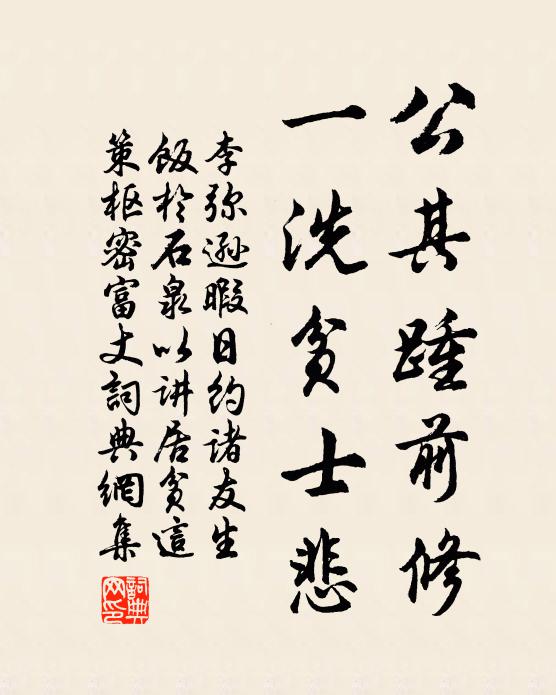 公其踵前修
一洗贫士悲
李弥逊暇日约诸友生
饭於石泉以讲居贫這
策枢密富丈詞典網集
詞典网印